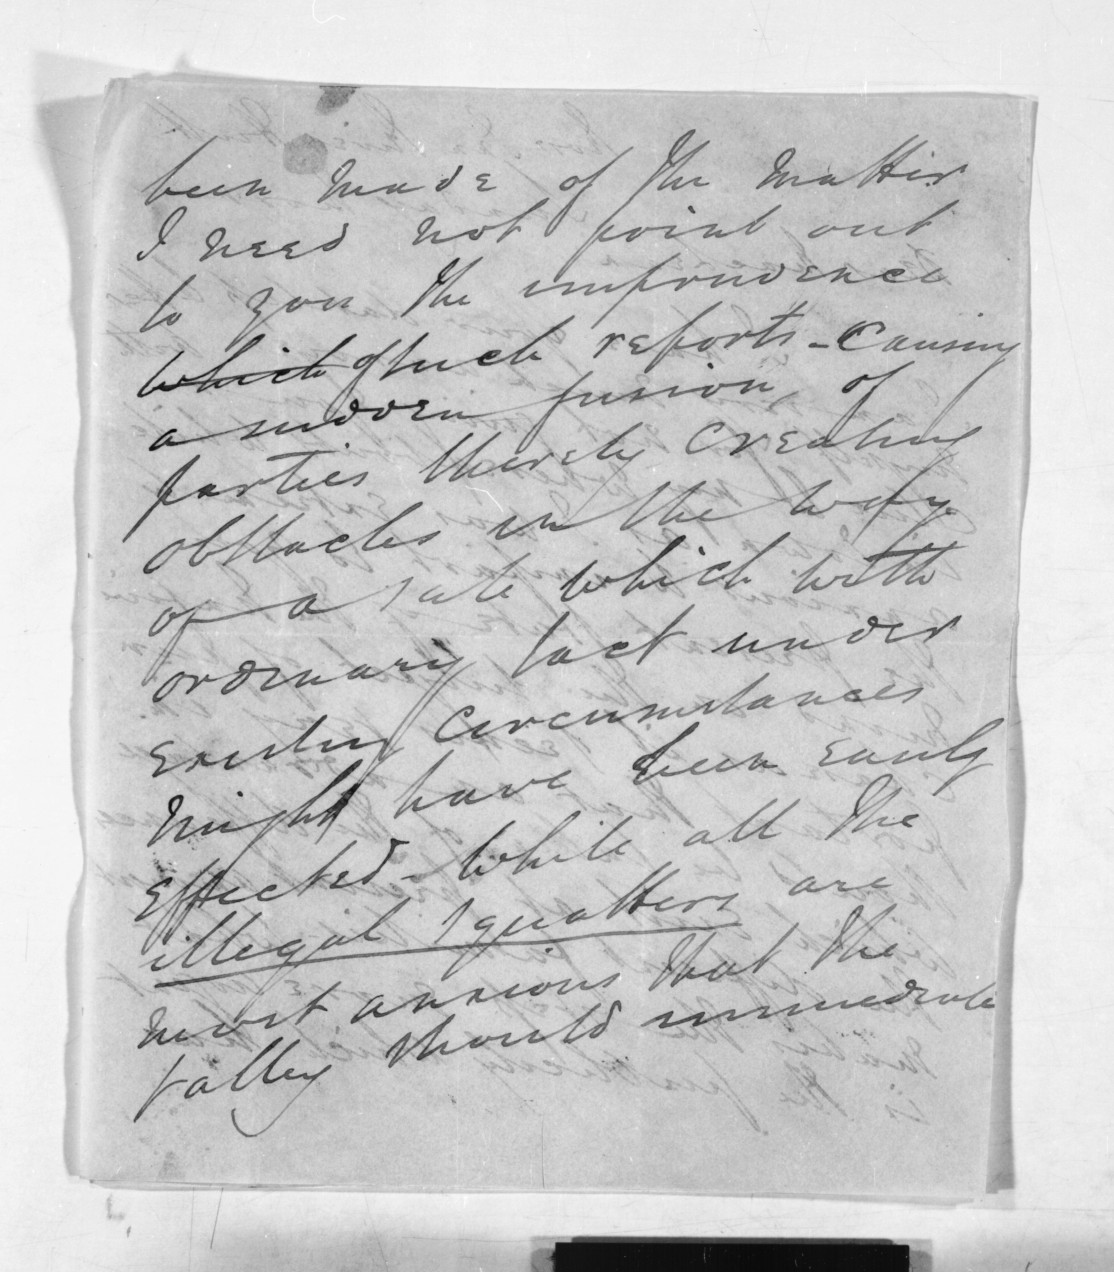 been made of the matter
I need not point out
to you the imprudence
which of such reports - causing
a sudden fusion, of
parties thereby creating
obstacles in the way
of a sale which with
ordinary tact under
existing circumstances
might have been easily
effected - while all the
illegal squatters are
most anxious that the
valley should immediate